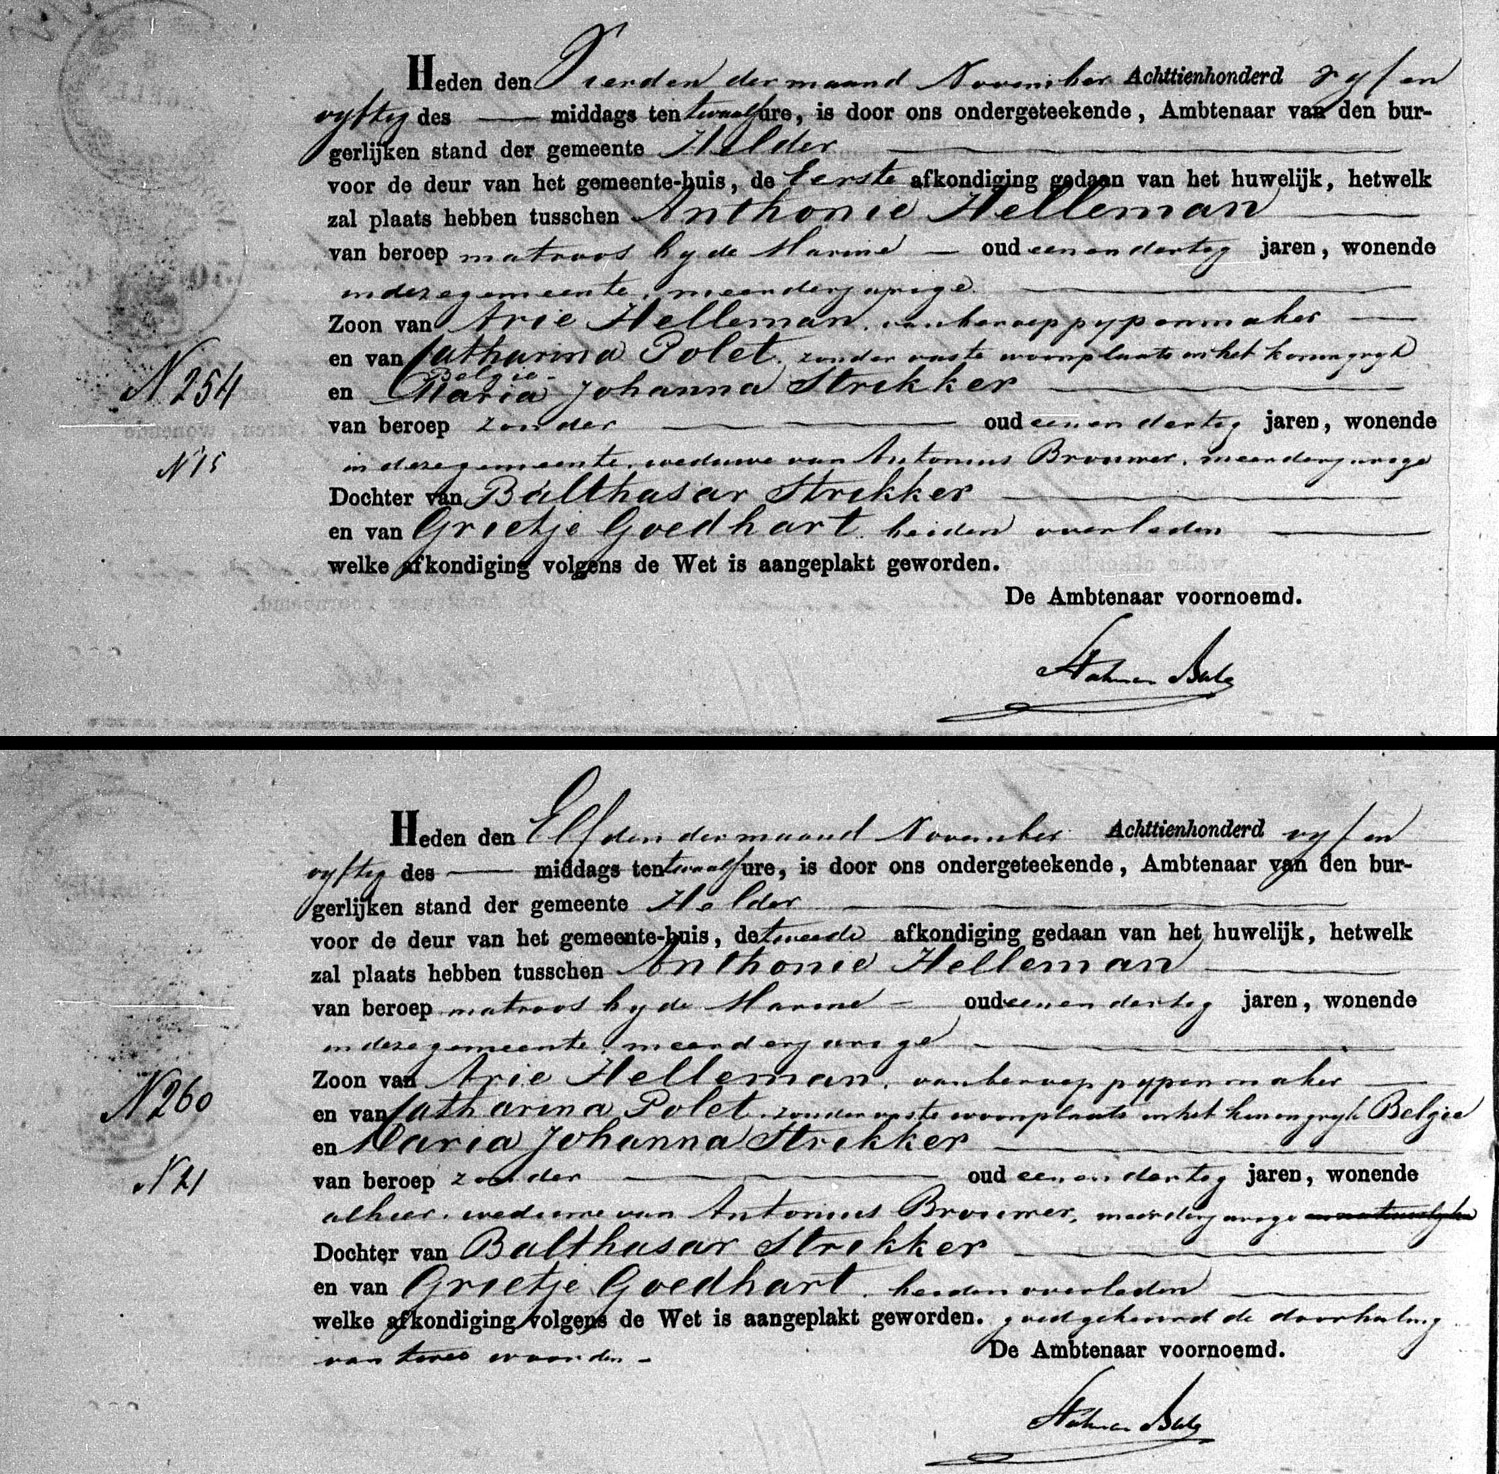 Heden den Vierden der maand November Achttienhonderd vyf en
vyftig des middags ten twaalf ure, is door ons ondergeteekende, Ambtenaar van den bur-
gerlijken stand der gemeente Helder
voor de deur van het gemeente-huis, de Eerste afkondiging gedaan van het huwelijk, hetwelk
zal plaats hebben tusschen Anthonie Helleman
van beroep matroos by de Marine oud een en dertig jaren, wonende
in deze gemeente, meerderjarige
Zoon van Arie Helleman, van beroep pypenmaker
en van Catharina Polet, zonder vaste woonplaats in het koningryk
Belgie
N 254
en Maria Johanna Strikker
van beroep zonder oud een en dertig jaren, wonende
N 15
in deze gemeente, weduwe van Antonius Brouwer, meerderjarige
Dochter van Balthasar Strikker
en van Grietje Goedhart, beiden overleden
welke afkondiging volgens de Wet is aangeplakt geworden.
De Ambtenaar voornoemd.
Heden den Elfden der maand November Achttienhonderd vyf en
vyftig des middags ten twaalf ure, is door ons ondergeteekende, Ambtenaar van den bur-
gerlijken stand der gemeente Helder
voor de deur van het gemeente-huis, de tweede afkondiging gedaan van het huwelijk, hetwelk
zal plaats hebben tusschen Anthonie Helleman
van beroep matroos by de Marine oud een en dertig jaren, wonende
in deze gemeente, meerderjarige
Zoon van Arie Helleman, van beroep pypenmaker
N 260
en van Catharina Polet, zonder vaste woonplaats in het koningryk Belgie
en Maria Johanna Strikker
N 21
van beroep zonder oud een en dertig jaren, wonende
alhier, weduwe van Antonius Brouwer, meerderjarige
Dochter van Balthasar Strikker
en van Grietje Goedhart, beiden overleden
welke afkondiging volgens de Wet is aangeplakt geworden. goedgekeurd de doorhaling
van twee woorden
De Ambtenaar voornoemd.